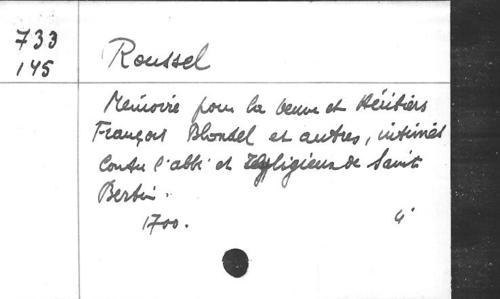 733
145
Roussel
Mémoire pour la veuve et Héritiers
François Blondel et autres, intimés
Contre l'abbé et Religieux de Saint
Bertin.
1700.
4°